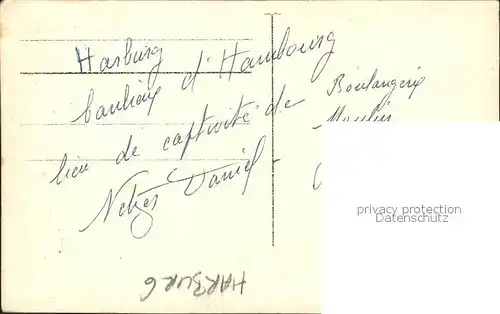 Harburg
banlieue d'Hambourg
lieu de captivité de
Daniel -
Boulangerie
Moulin
privacy protection
Datenschutz
HARBURG